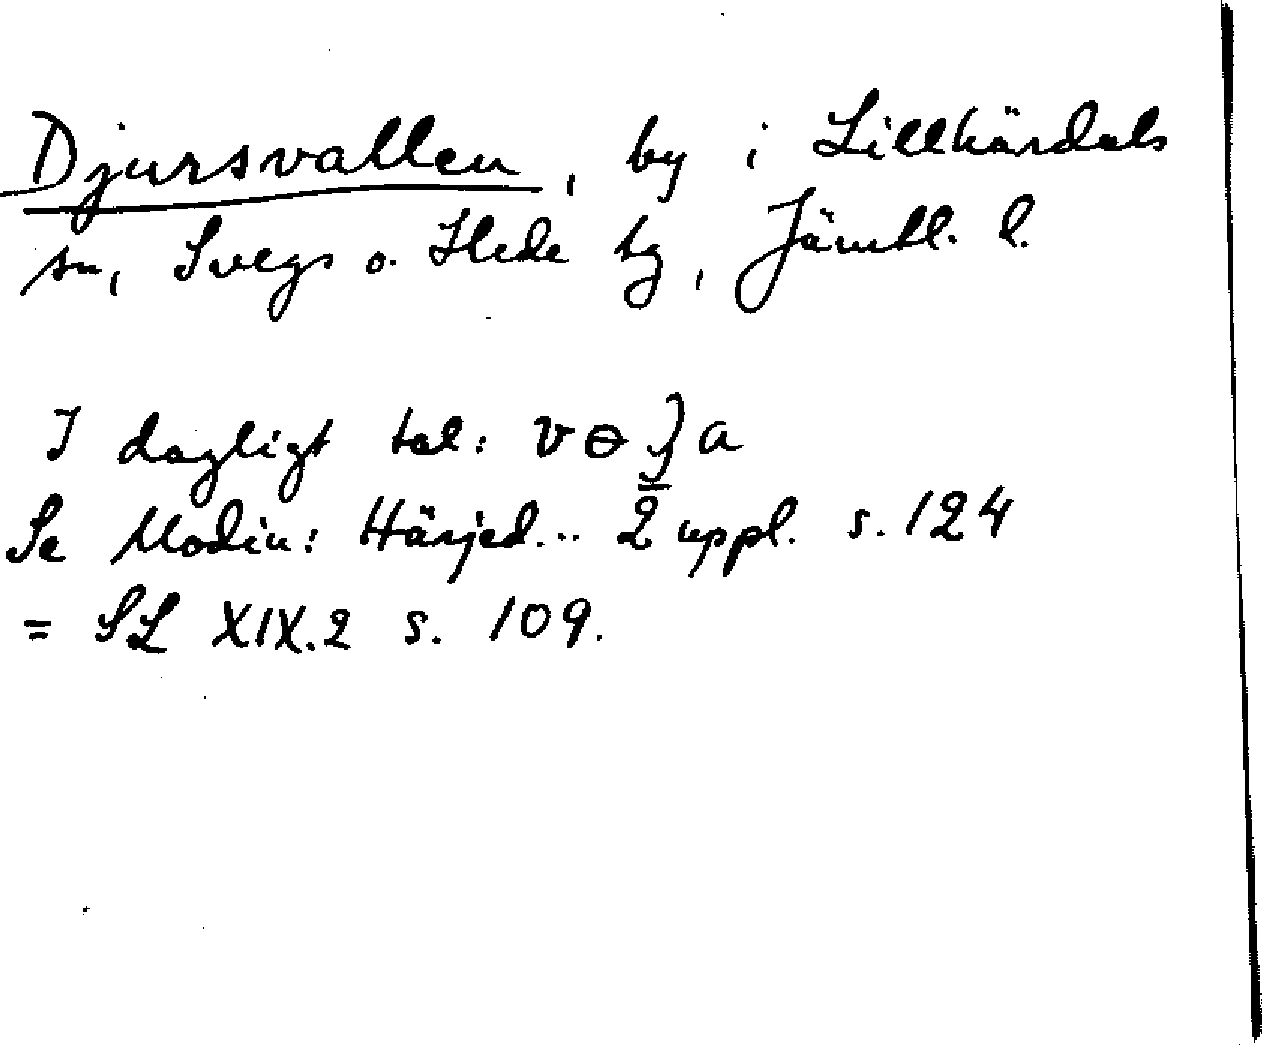 Djursvallen, by i Lillhärdals
sn, Svegs o. Hede tg, Jämtl. l.
I dagligt tal:
Se Modin: Härjed... 2 uppl. s. 124
= SL XIX.2 s. 109.